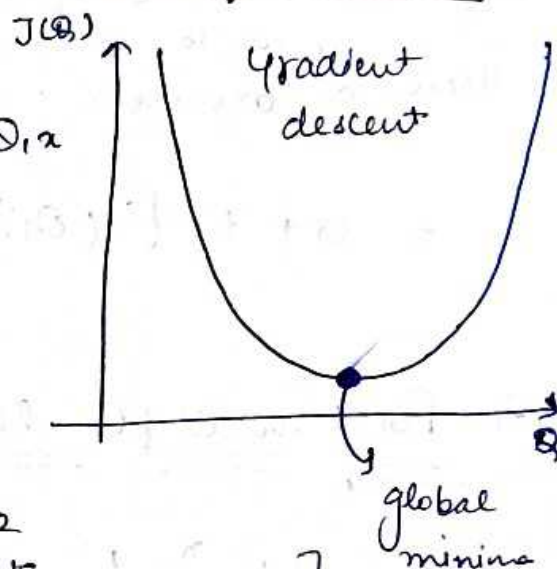 J(θ)
Gradient
descent
θ₁x
θ₁
global
minima